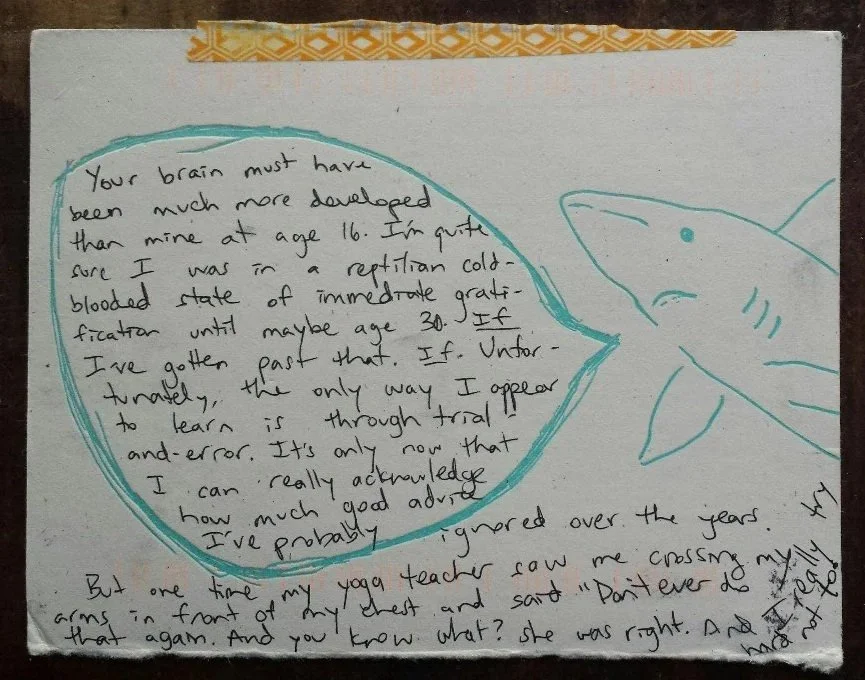 Your brain must have
been much more developed
than mine at age 16. I'm quite
sure I was in a reptilian cold-
blooded state of immediate grati-
fication until maybe age 30. If
I've gotten past that. If. Unfor-
tunately, the only way I appear
to learn is through trial-
and-error. It's only now that
I can really acknowledge
how much good advice
I've probably ignored over the years.
But one time my yoga teacher saw me crossing my
arms in front of my chest and said "Don't ever do
that again. And you know what? she was right. And I really try
hard not to.